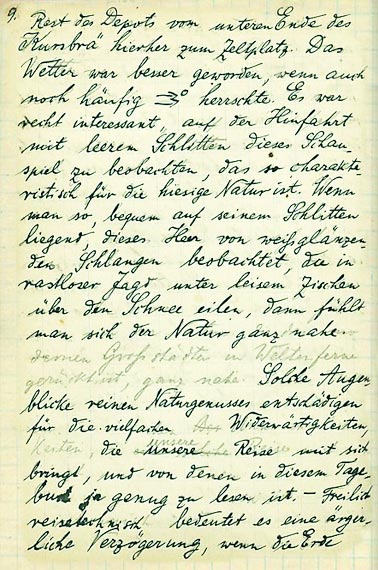 9. Rest des Depots vom unteren Ende des
"Kursbrä" hierher zum Zeltplatz. Das
Wetter war besser geworden, wenn auch
noch häufig herrschte. Es war
recht interessant, auf der Hinfahrt
mit leerem Schlitten dieses Schau-
spiel zu beobachten, das so charakte-
ristisch für die hiesige Natur ist. Wenn
man so, bequem auf seinem Schlitten
liegend, dieses Heer von weißglänzen-
den Schlangen beobachtet, die in
rastloser Jagd unter leisem Zischen
über den Schnee eilen, dann fühlt
man sich der Natur ganz nahe
Großstädten in Weltenferne
gerückt ist, ganz nahe. Solche Augen-
blicke reinen Naturgenusses entschädigen
für die vielfachen Widerwärtigkeiten,
keiten, die unsere Reise mit sich
bringt, und von denen in diesem Tage-
buch ja genug zu lesen ist. – Freilich
reisetechnisch bedeutet es eine ärger-
liche Verzögerung, wenn die Erde